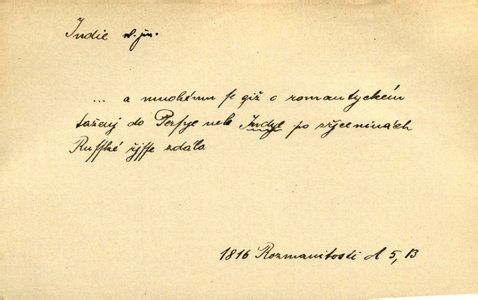 Indie
... a mnohému se giž o romantyckém
taženj do Persye neb Indye po
Russké řjsse zdálo
1816 Rozmanitosti 5, 13